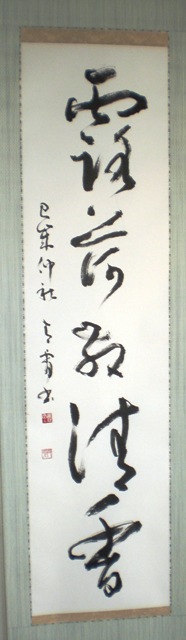 露荷散清香
己未仲秋
書